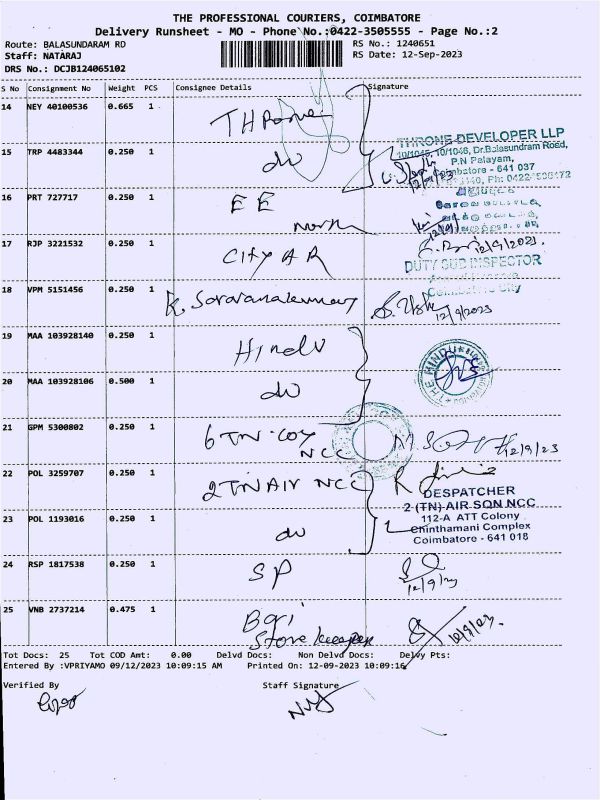 THE PROFESSIONAL COURIERS, COIMBATORE
Delivery Runsheet - MO - Phone No.:0422-3505555 - Page No.:2
Route: BALASUNDARAM RD
RS No.: 1240651
Staff: NATARAJ
RS Date: 12-Sep-2023
DRS No.: DCJB124065102
S No Consignment No Weight PCS Consignee Details Signature
14 NEY 40100536 0.665 1 Throne
THRONE DEVELOPER LLP
10/1045, 10/1046, Dr.Balasundram Road,
15 TRP 4483344 0.250 1 do
P.N Palayam,
Coimbatore - 641 037
12/9/23
16 PRT 727717 0.250 1 EE
North
17 RJP 3221532 0.250 1 City AR
12/9/2023.
DUTY SUB INSPECTOR
Coimbatore City
18 VPM 5151456 0.250 1 K. Saravanakumar
12/9/2023
19 MAA 103928140 0.250 1 Hindu
THE HINDU
20 MAA 103928106 0.500 1 do
21 GPM 5300802 0.250 1 6 TN COY
NCC
12/9/23
22 POL 3259707 0.250 1 2 TN AIR NCC
DESPATCHER
2 (TN) AIR SQN NCC
112-A ATT Colony
23 POL 1193016 0.250 1 do
Chinthamani Complex
Coimbatore - 641 018
24 RSP 1817538 0.250 1 SP
12/9/23
25 VNB 2737214 0.475 1
Store keeper
12/9/23.
Tot Docs: 25 Tot COD Amt: 0.00 Delvd Docs: Non Delvd Docs: Delvy Pts:
Entered By :VPRIYAMO 09/12/2023 10:09:15 AM Printed On: 12-09-2023 10:09:16
Verified By Staff Signature